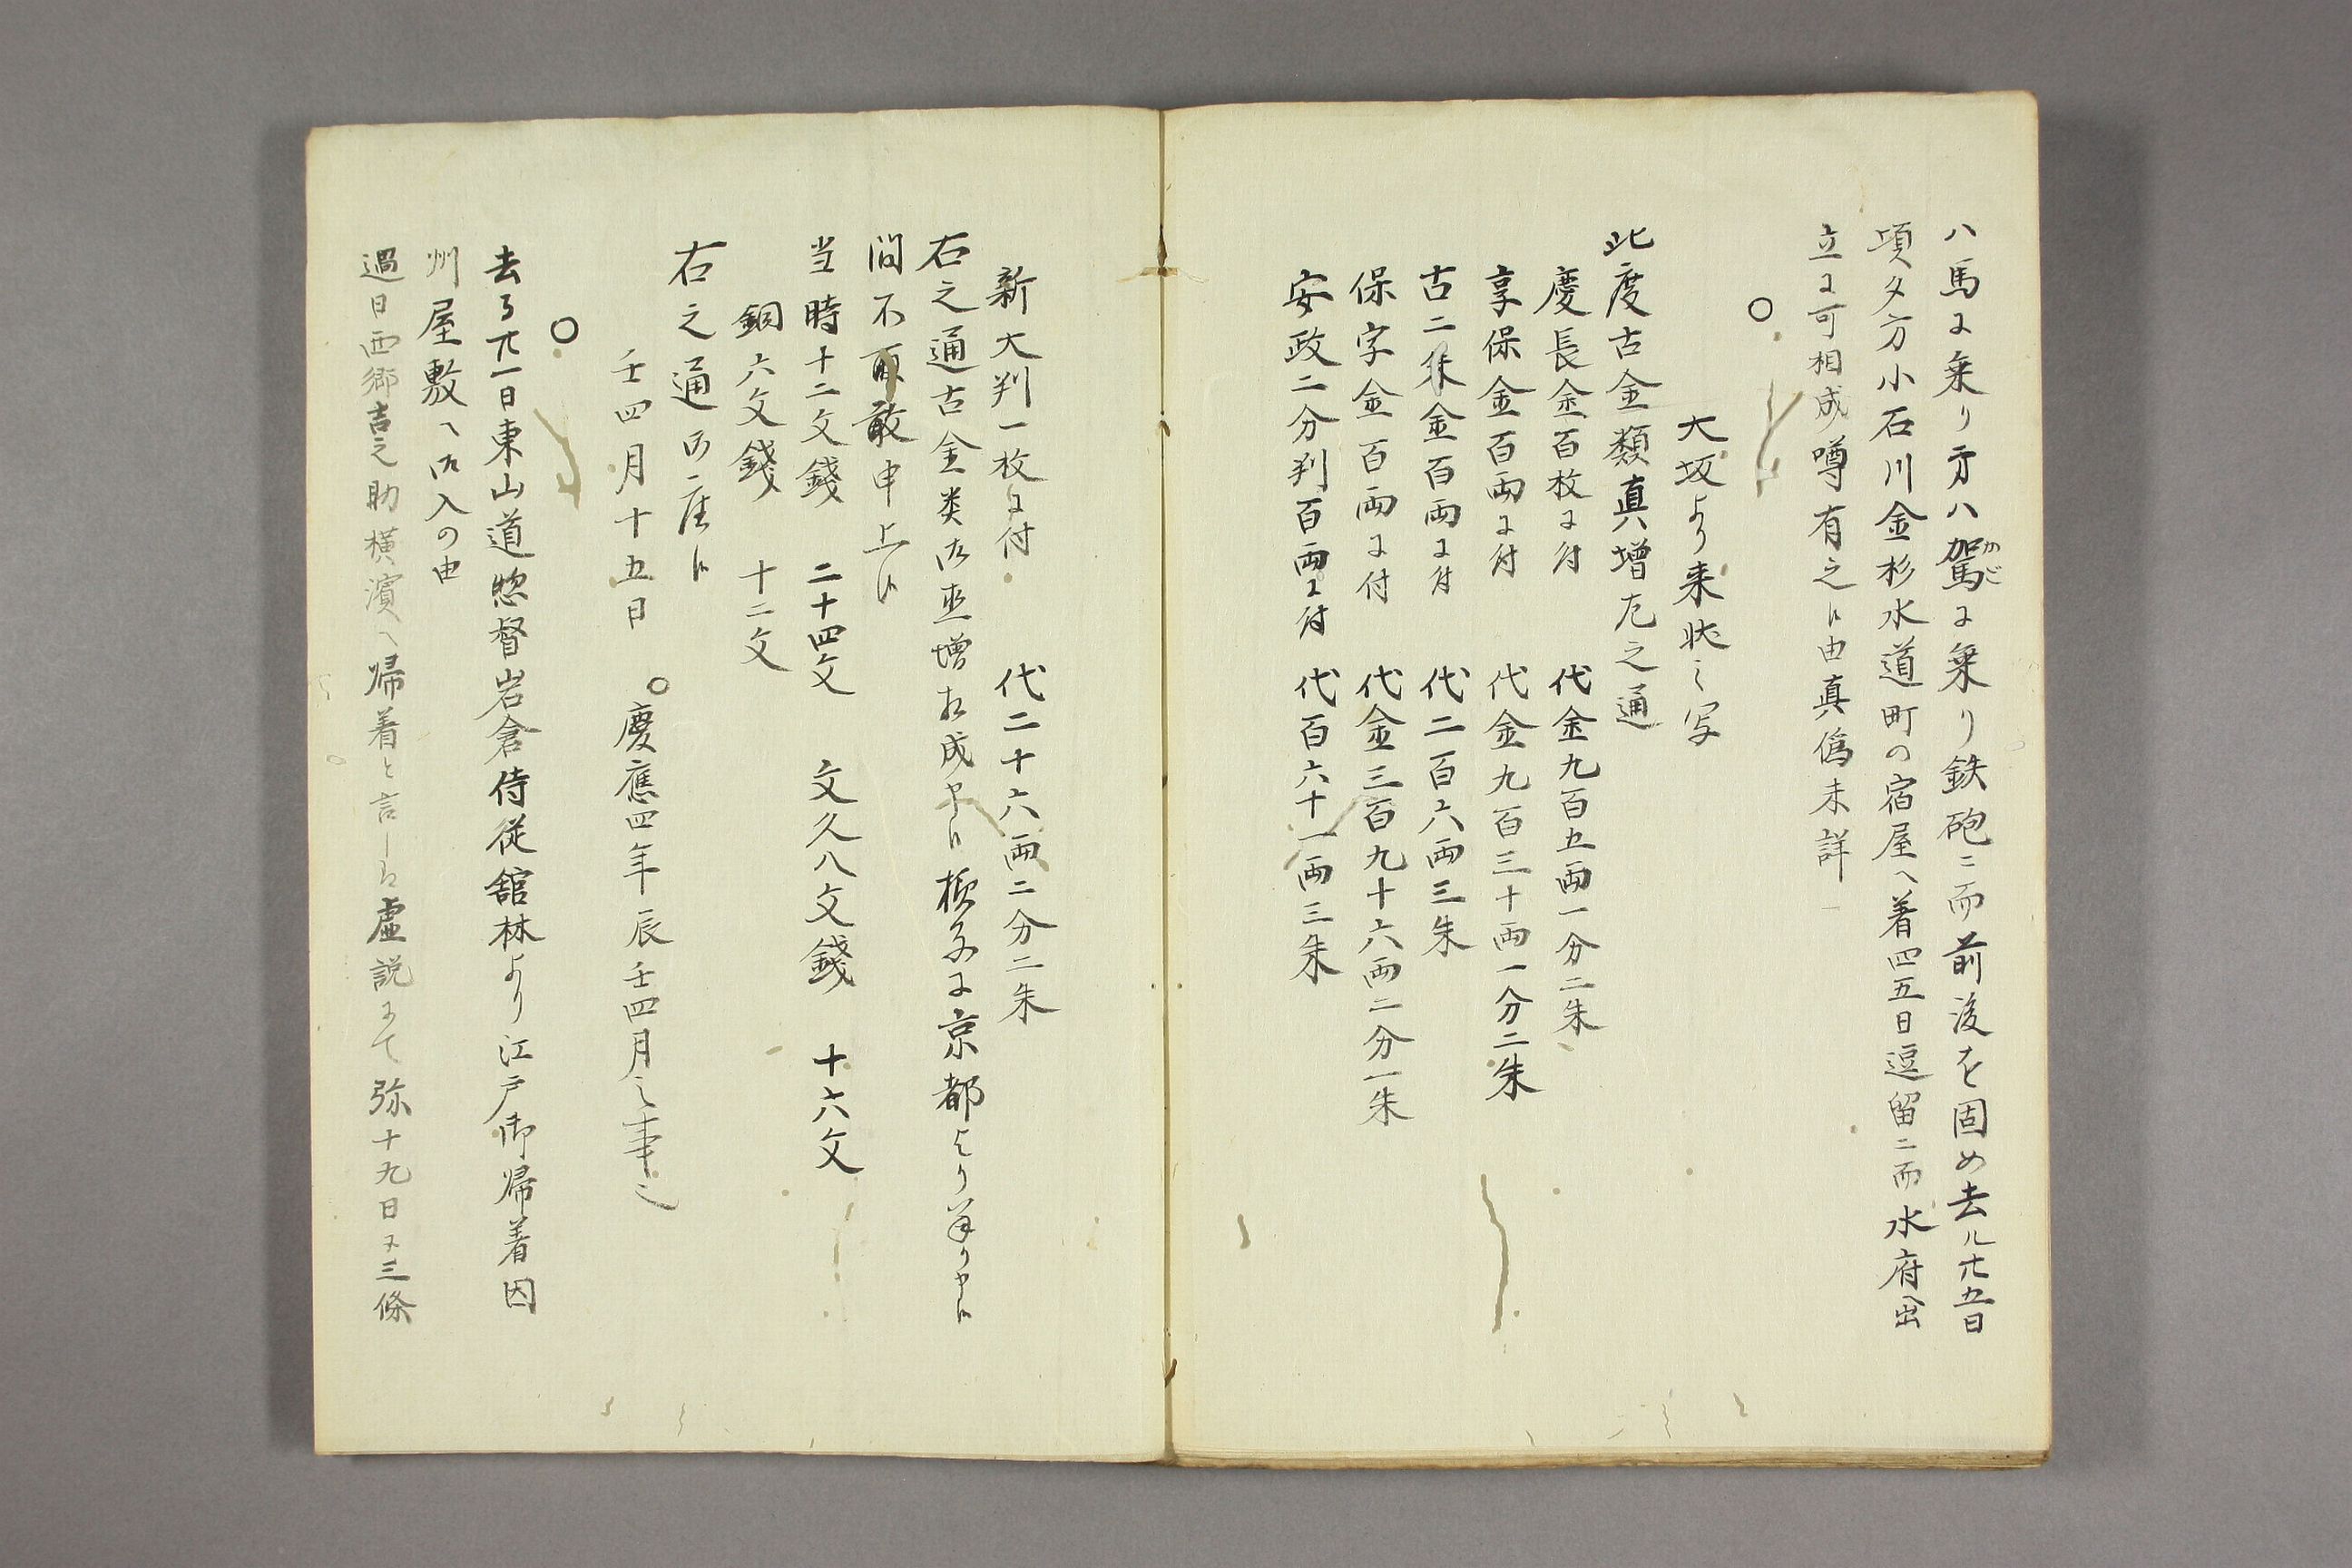 ハ馬ニ乗り方ハ駕かごニ乗り鉄砲ニ而前後を固め去ル廿五日
頃夕方小石川金杉水道町の宿屋へ着四五日逗留ニ而水府へ出
立ニ可相成噂有之候由真偽未詳
○
大坂より来状之写
此度古金類真増左之通
慶長金百枚ニ付 代金九百五両一分二朱
享保金百両ニ付 代金九百三十両一分二朱
古二朱金百両ニ付 代二百六両三朱
保字金百両ニ付 代金三百九十六両二分一朱
安政二分判百両ニ付 代百六十一両三朱
新大判一枚ニ付 代二十六両二分二朱
右之通古金类御直増相成申候様子ニ京都より参り申候
間不取敢申上候
当時十二文錢 二十四文 文久八文錢 十六文
銅六文錢 十二文
右之通御座候
壬四月十五日 ○慶應四年辰壬四月之事也
○
去る廿一日東山道惣督岩倉侍従舘林より江戸御帰着因
州屋敷へ御入の由
過日西郷吉之助横濱へ帰着と言しハ虚説にて弥十九日ニ三條